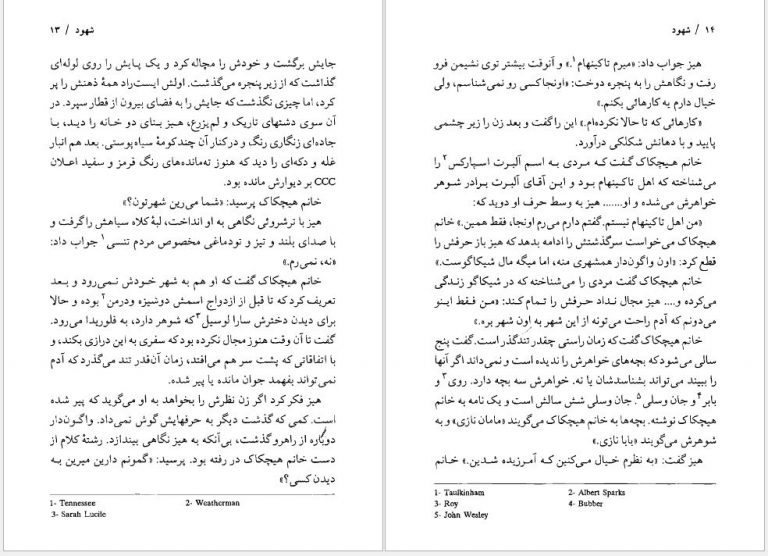 شهود / ۱۳
جایش برگشت و خودش را مچاله کرد و یک پایش را روی لوله‌ای
گذاشت که از زیر پنجره می‌گذشت. اولش ایست‌راد همهٔ ذهنش را پر
کرد، اما چیزی نگذشت که جایش را به فضای بیرون از قطار سپرد. در
آن سوی دشتهای تاریک و لم‌یزرع، هیز بنای دو خانه را دید، با
جاده‌ای زنگاری رنگ و درکنار آن چندکومهٔ سیاه پوستی. بعد هم انبار
غله و دکه‌ای را دید که هنوز ته‌مانده‌های رنگ قرمز و سفید اعلان
CCC بر دیوارش مانده بود.
خانم هیچکاک پرسید: «شما می‌رین شهرتون؟»
هیز با ترشروئی نگاهی به او انداخت، لبهٔ کلاه سیاهش را گرفت و
با صدای بلند و تیز و تودماغی مخصوص مردم تنسی۱ جواب داد:
«نه، نمی‌رم.»
خانم هیچکاک گفت که او هم به شهر خودش نمی‌رود و بعد
تعریف کرد که تا قبل از ازدواج اسمش دوشیزه ودرمن۲ بوده و حالا
برای دیدن دخترش سارا لوسیل۳ که شوهر دارد، به فلوریدا می‌رود.
گفت تا آن وقت هنوز مجال نکرده بود که سفری به این درازی بکند، و
با اتفاقاتی که پشت سر هم می‌افتد، زمان آن‌قدر تند می‌گذرد که آدم
نمی‌تواند بفهمد جوان مانده یا پیر شده.
هیز فکر کرد اگر زن نظرش را بخواهد به او می‌گوید که پیر شده
است. کمی که گذشت دیگر به حرفهایش گوش نمی‌داد. واگون‌دار
دوباره از راهرو گذشت، بی‌آنکه به هیز نگاهی بیندازد. رشتهٔ کلام از
دست خانم هیچکاک در رفته بود. پرسید: «گمونم دارین میرین به
دیدن کسی؟»
1- Tennessee 2- Weatherman
3- Sarah Lucile
۱۴ / شهود
هیز جواب داد: «میرم تاکینهام۱.» و آنوقت بیشتر توی نشیمن فرو
رفت و نگاهش را به پنجره دوخت: «اونجا کسی رو نمی‌شناسم، ولی
خیال دارم یه کارهائی بکنم.»
«کارهائی که تا حالا نکرده‌ام.» این را گفت و بعد زن را زیر چشمی
پایید و با دهانش شکلکی درآورد.
خانم هیچکاک گفت که مردی به اسم آلبرت اسپارکس۲ را
می‌شناخته که اهل تاکینهام بود و این آقای آلبرت برادر شوهر
خواهرش می‌شده و او....... هیز به وسط حرف او دوید که:
«من اهل تاکینهام نیستم. گفتم دارم می‌رم اونجا، فقط همین.» خانم
هیچکاک می‌خواست سرگذشتش را ادامه بدهد که هیز باز حرفش را
قطع کرد: «اون واگون‌دار همشهری منه، اما میگه مال شیکاگوست.»
خانم هیچکاک گفت مردی را می‌شناخته که در شیکاگو زندگی
می‌کرده و.... هیز مجال نداد حرفش را تمام کند: «من فقط اینو
می‌دونم که آدم راحت می‌تونه از این شهر به اون شهر بره.»
خانم هیچکاک گفت که زمان راستی چقدر تندگذر است. گفت پنج
سالی می‌شود که بچه‌های خواهرش را ندیده است و نمی‌داند اگر آنها
را ببیند می‌تواند بشناسدشان یا نه. خواهرش سه بچه دارد. روی۳ و
بابر۴ و جان وسلی۵. جان وسلی شش سالش است و یک نامه به خانم
هیچکاک نوشته. بچه‌ها به خانم هیچکاک می‌گویند «مامان نازی» و به
شوهرش می‌گویند «بابا نازی.»
هیز گفت: «به نظرم خیال می‌کنین که آمرزیده شدین.» خانم
1- Taulkinham 2- Albert Sparks
3- Roy 4- Bubber
5- John Wesley